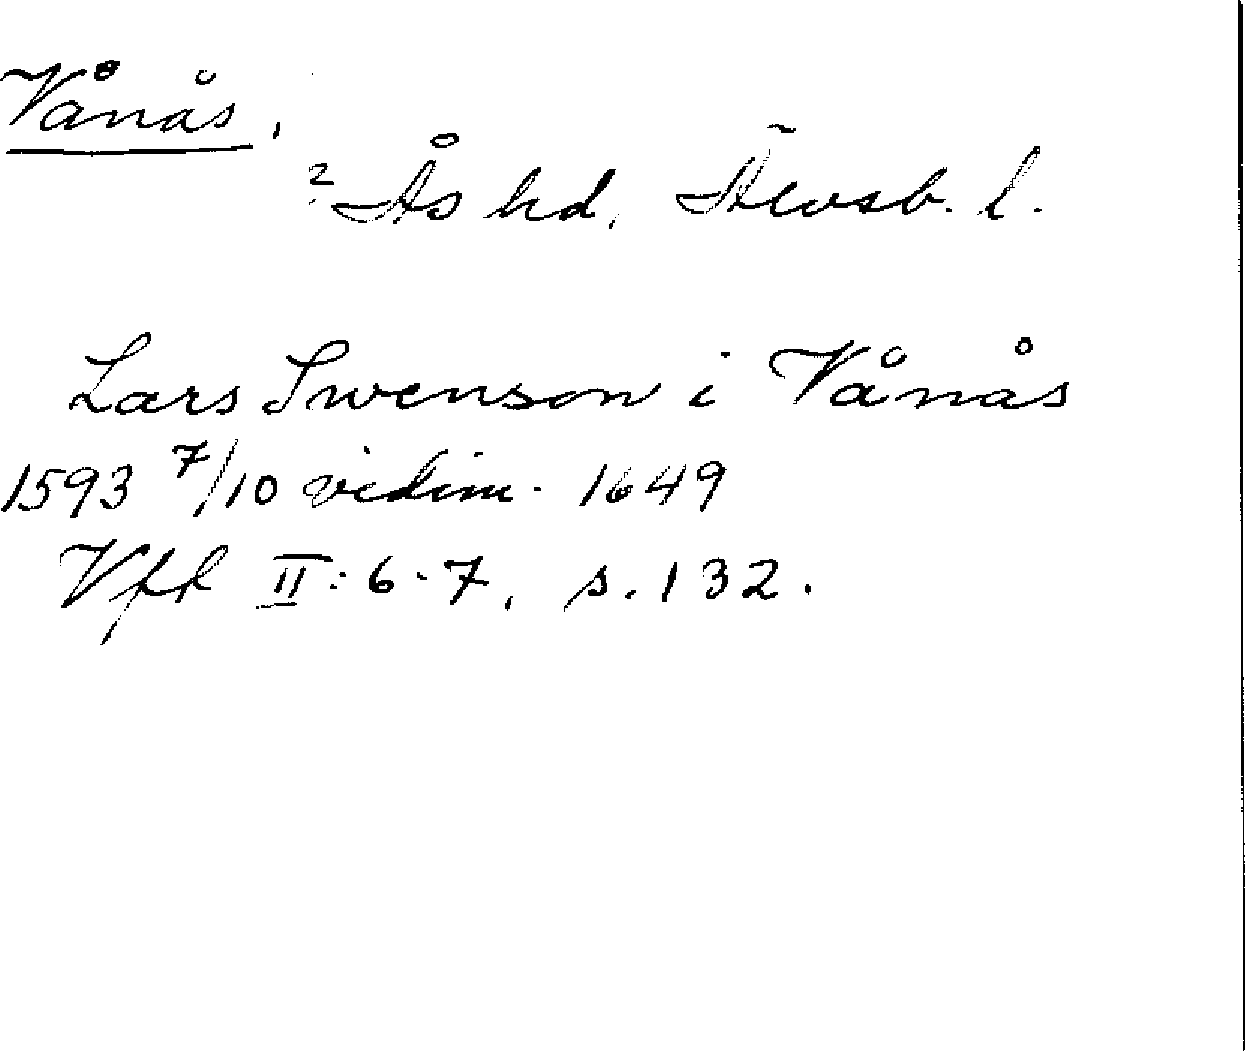 Vånås.
? Ås hd. Älvsb. l.
Lars Swenson i Vånås
1593 7/10 vidim. 1649
Vfk II: 6-7, s. 132.